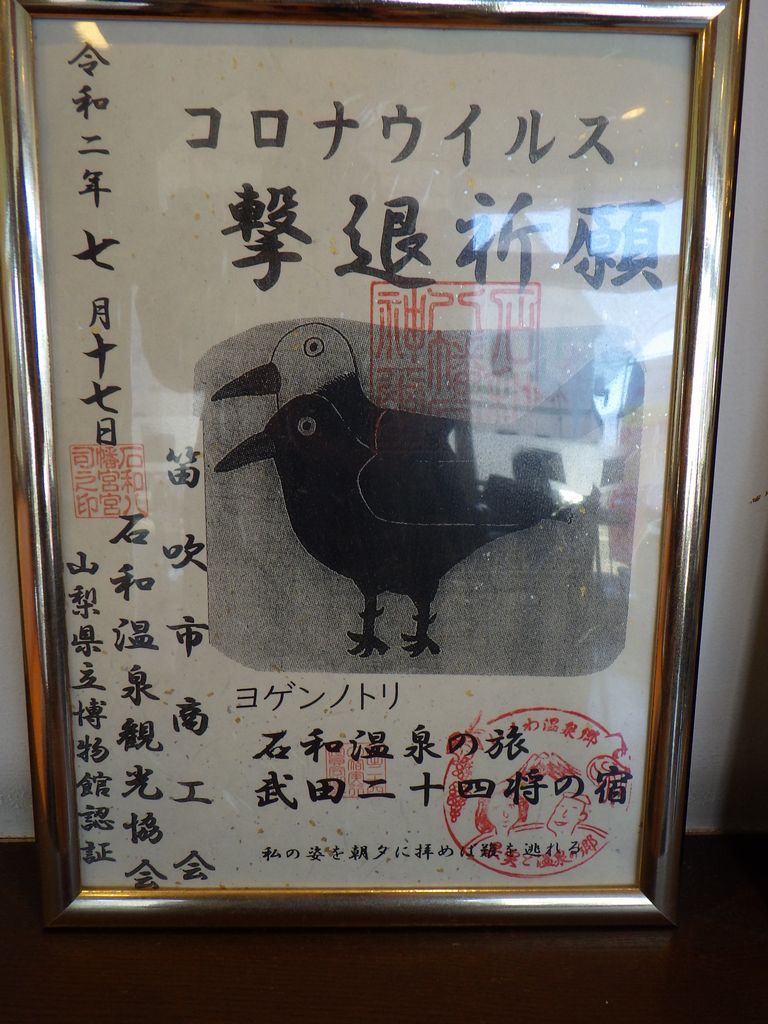 コロナウイルス
撃退祈願
ヨゲンノトリ
石和温泉の旅
武田二十四将の宿
私の姿を朝夕に拝めば難を逃れる
笛吹市商工会
石和温泉観光協会
山梨県立博物館認証
令和二年七月十七日
石和八
幡宮宮
司之印